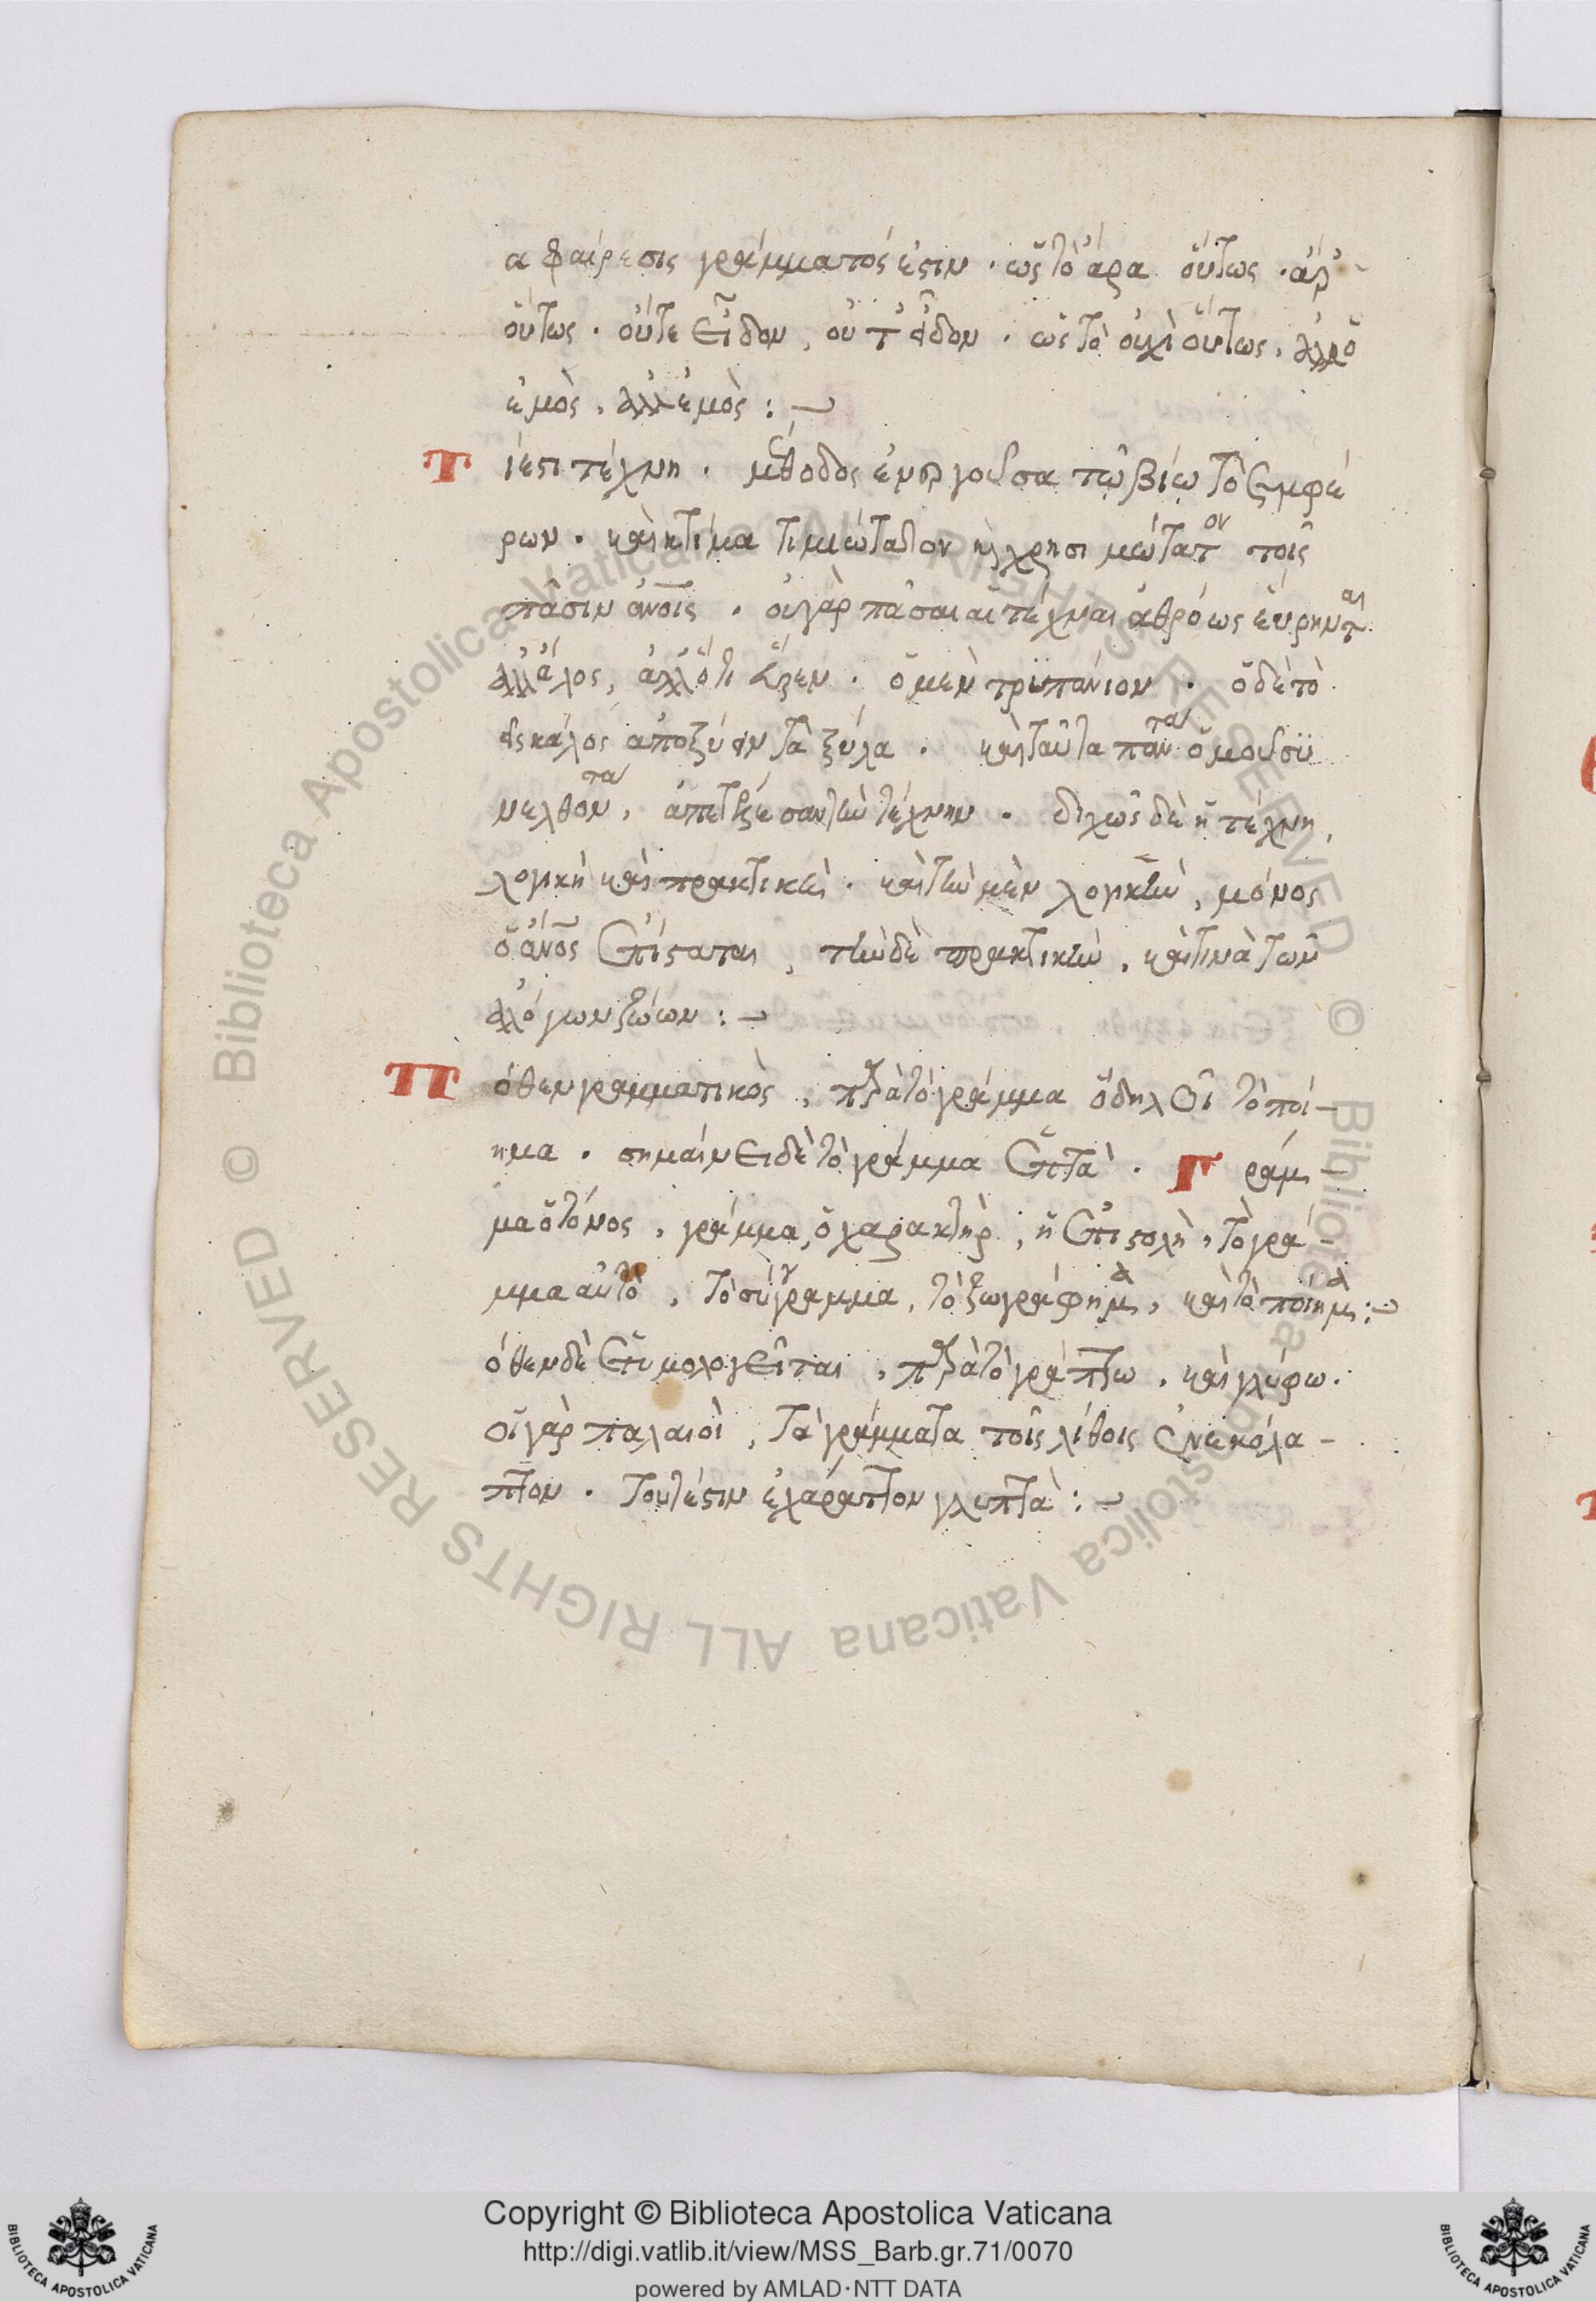 αφαίρεσις γράμματός ἐστιν · ὡς τὸ ἄρα οὕτως · ἀρ᾽
οὕτως · οὔτε εἶδον, οὐτ᾽ εἶδον · ὡς τὸ οὐχὶ οὕτως, ἀλλ᾽ ὁ
ἐμὸς, ἀλλ᾽ ἐμὸς :
Τίεστι τέχνη · μέθοδος ἐνεργοῦσα τῷ βίῳ τὸ συμφέ
ρων · καὶ κτίμα τιμιώτατον καὶ χρησιμώτατον τοῖς
πᾶσιν ἀνοις · οὐ γὰρ πᾶσαι αἱ τέχναι ἀθρόως εὕρηνται
ἀλλ᾽ ἄλος, ἀλλ᾽ ὅτι εὗρεν · ὁ μὲν τρϋπάνιον · ὁ δὲ τὸ
εἰς κάλος ἀποξύειν τὰ ξύλα · καὶ ταῦτα πάντα ὁμοῦ σϋ
νελθόντα, ἀπετελέσαν τὴν τέχνην · διχῶς δὲ ἡ τέχνη,
λογικὴ καὶ πρακτικὴ · καὶ τὴν μὲν λογικὴν, μόνος
ὁ ἄνος ἐπίσταται, τὴν δὲ πρακτικὴν, καὶ τινὰ τῶν
ἀλόγων ζώων :
Πόθεν γραμματικὸς, παρὰ τὸ γράμμα ὃ δηλοῖ τὸ ποί-
ημα · σημαίνει δὲ τὸ γράμμα ἑπτὰ · Γράμ-
μα ὁ τόνος, γράμμα, ὁ χαρακτὴρ, ἡ ἐπιστολὴ, τὸ γρά-
μμα αὐτὸ, τὸ σύγγραμμα, τὸ ζωγράφημα, καὶ τὸ ποίημα :
όθεν δὲ ἐτυμολογεῖται, παρὰ τὸ γράπτω, καὶ γλύφω.
οἱ γὰρ παλαιοὶ, τὰ γράμματα τοῖς λίθοις ἐνεκόλα-
πτον · τουτέστιν ἐχάραττον γλυπτὰ :
Copyright © Biblioteca Apostolica Vaticana
http://digi.vatlib.it/view/MSS_Barb.gr.71/0070
powered by AMLAD·NTT DATA
BIBLIOTECA APOSTOLICA VATICANA
BIBLIOTECA APOSTOLICA VATICANA
© Biblioteca Apostolica Vaticana ALL RIGHTS RESERVED
© Biblioteca Apostolica Vaticana ALL RIGHTS RESERVED